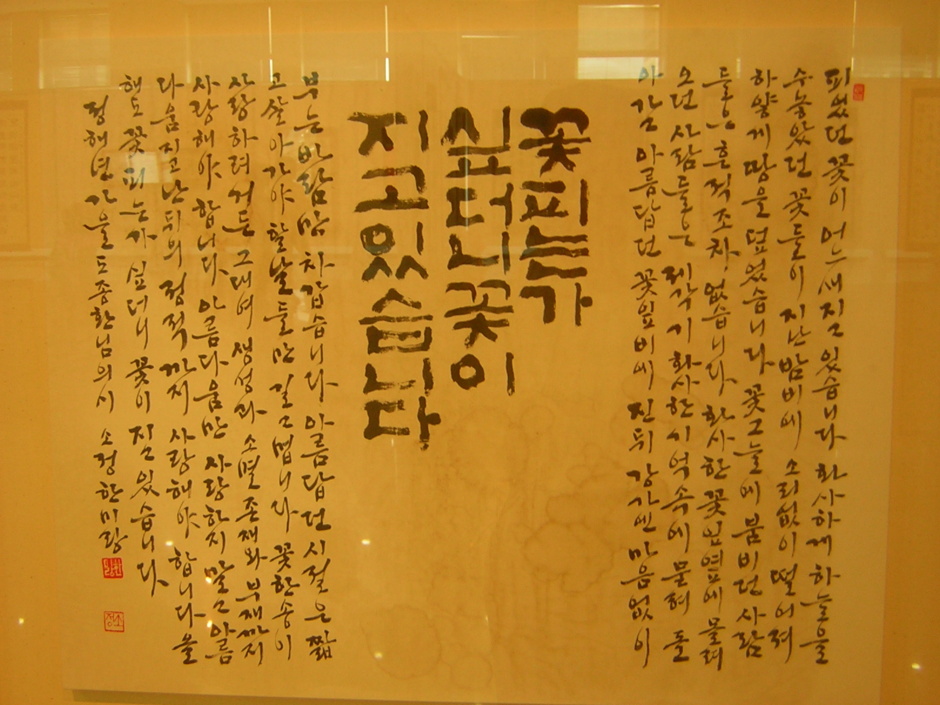 피었던 꽃이 어느새 지고 있습니다 화사하게 하늘을
수놓았던 꽃들이 지난 밤비에 소리없이 떨어져
하얗게 땅을 덮었습니다 꽃그늘에 붐비던 사람
들은 흔적조차 없습니다 화사한 꽃잎 옆에 몰려
오던 사람들은 제각기 화사한 기억 속에 묻혀 돌
아가고 아름답던 꽃잎 비에 진 뒤 강가엔 마음 없이
꽃 피는가
싶더니 꽃이
지고 있습니다
부는 바람만 차갑습니다 아름답던 시절은 짧
고 살아가야 할 날들만 길고 멉니다 꽃 한 송이
사랑하려거든 그대여 생성과 소멸 존재와 부재까지
사랑해야 합니다 아름다움만 사랑하지 말고 아름
다움 지고 난 뒤의 정적까지 사랑해야 합니다 올
해도 꽃 피는가 싶더니 꽃이 지고 있습니다
정해년 가을 도종환님의 시 소정 한미랑